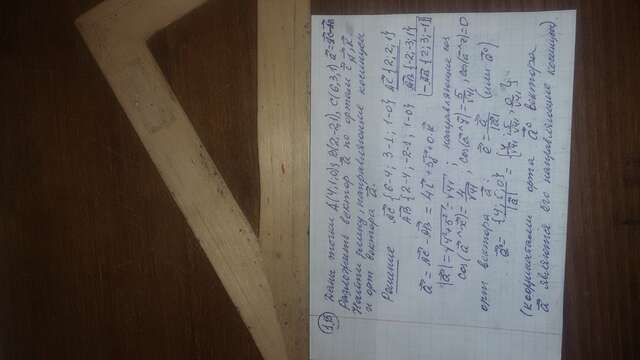 1.13 Даны точки A(4,1,0); B(2,-2,1), C(6,3,1) a⃗=
Разложить вектор a⃗ по ортам
Найти длину, направляющие косинусы
и орт вектора a⃗.
Решение A⃗C {6-4; 3-1; 1-0} A⃗C {2,2,1}
A⃗B {2-4; -2-1; 1-0} A⃗B {-2,-3,1}
-A⃗B {2; 3;-1}
a⃗ = A⃗C - A⃗B = 4i⃗ + 5j⃗ + 0·k⃗
|a⃗| = √4²+5² = √41; направляющие cos
cos(a⃗^x⃗)=4/√41, cos(a⃗^y⃗)=5/√41; cos(a⃗^z)=0
орт вектора a⃗: e⃗ = a⃗/|a⃗| (или a⃗⁰)
a⃗⁰ = {4,5,0}/|a⃗| = {4/√41; 5/√41; 0}
(координатами орта a⃗⁰ вектора
a⃗ являются его направляющие косинусы)